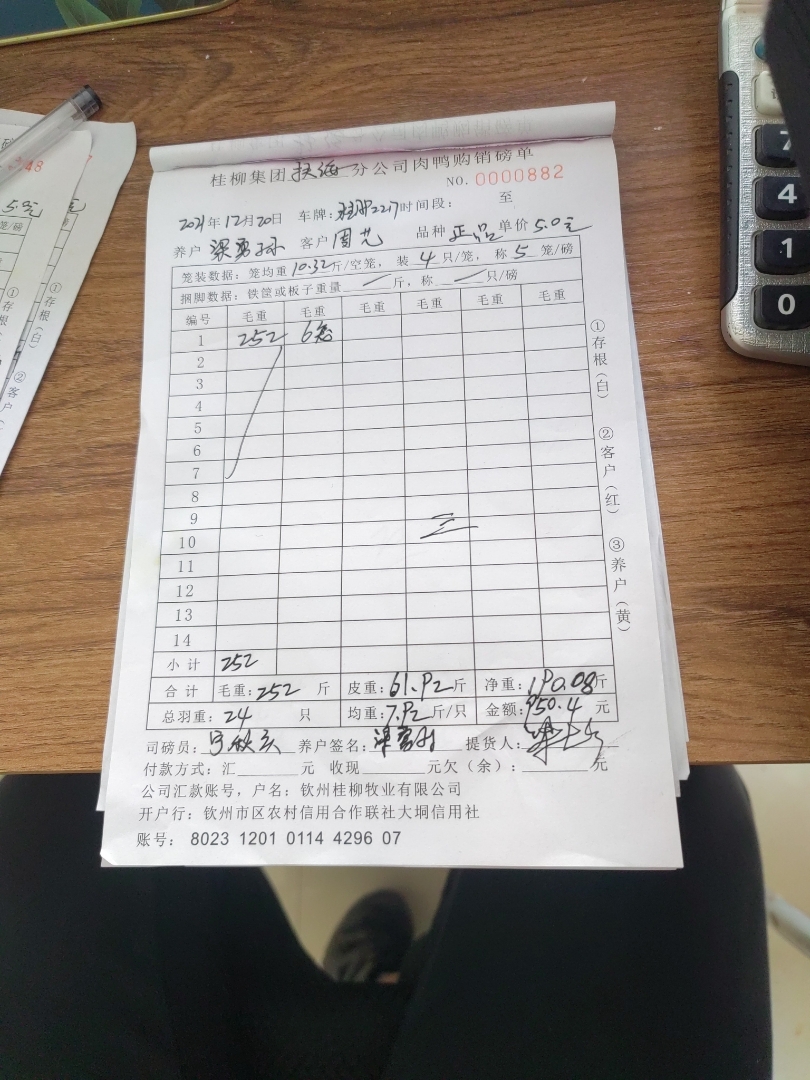 桂柳集团扶海分公司肉鸭购销磅单
NO.0000882
2021年12月20日 车牌: 2217时间段: 至
养户 梁勇孙 客户 周艺 品种 正品 单价 5.0元
笼装数据: 笼均重 10.32斤/空笼, 装 4 只/笼, 称 5 笼/磅
捆脚数据: 铁筐或板子重量 / 斤, 称 / 只/磅
编号 毛重 毛重 毛重 毛重 毛重 毛重
1 252 6笼
2
3
4
5
6
7
8
9
10
11
12
13
14
小计 252
合计 毛重: 252 斤 皮重: 61.92斤 净重: 190.08斤
总羽重: 24 只 均重: 7.92斤/只 金额: 950.4 元
司磅员: 养户签名: 梁勇孙 提货人:
付款方式: 汇 元 收现 元欠(余): 元
公司汇款账号, 户名: 钦州桂柳牧业有限公司
开户行: 钦州市区农村信用合作联社大垌信用社
账号: 8023 1201 0114 4296 07
①存根(白) ②客户(红) ③养户(黄)
7
4
1
0